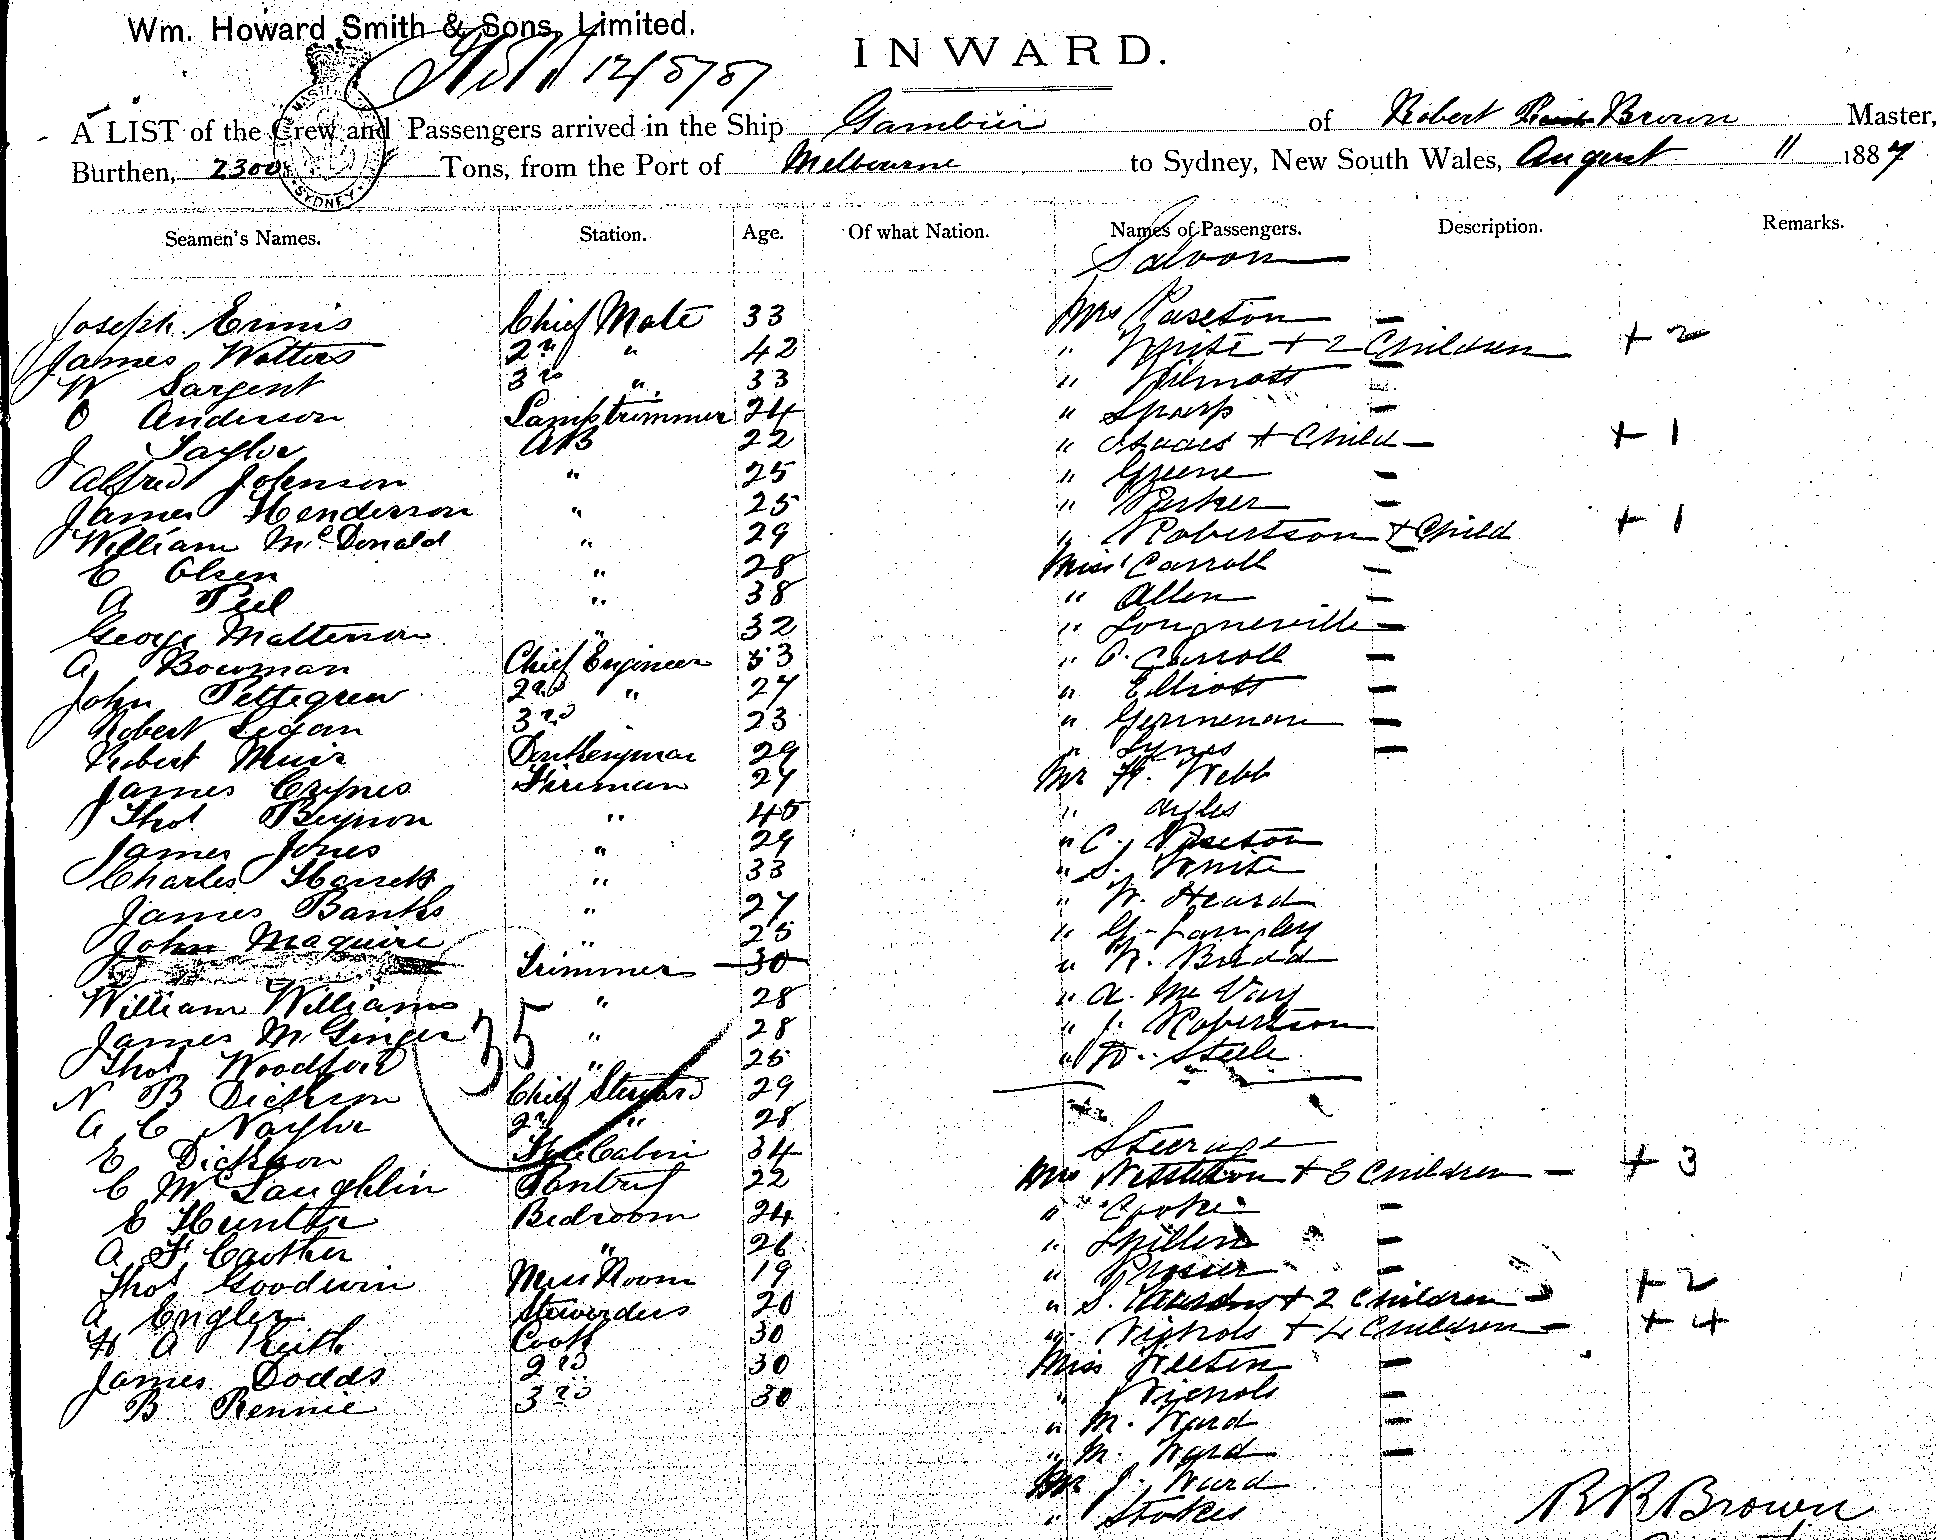 Wm. Howard Smith & Sons, Limited.
12/8/87
INWARD.
A LIST of the Crew and Passengers arrived in the Ship Gambier of Robert Brown Master,
Burthen, 2300 Tons, from the Port of Melbourne to Sydney, New South Wales, August 11 1887
SYDNEY
Seamen's Names. Station. Age. Of what Nation. Names of Passengers. Description. Remarks.
Saloon
Joseph Ennis Chief Mate 33 Mrs Paseton —
James Watters 2nd " 42 " White + 2 Children — + 2
W Sargent 3rd " 33 " Wilmott —
O Anderson Lamptrimmer 24 " Sharp —
J Taylor AB 22 " Isaacs + Child — + 1
Alfred Johnson " 25 " Greene —
James Henderson " 25 " Parker —
William McDonald " 29 " Robertson + Child + 1
C Olsen " 28 Miss Carroll —
A Peel " 38 " Allen —
George Matterson " 32 " Longneville —
A Bowman Chief Engineer 33 " Carroll —
John Pettegrew 2nd " 27 " Elliott —
Robert Logan 3rd 23 "
Robert Muir Donkeyman 29 " Lynes —
James Fireman 27 Mr H. Webb
Thos Beynon " 45 "
James Jones " 29 " C. Paseton
Charles " 33 " S. White
James Banks " 27 " W. Heard
John Maguire " 25 " G.
Trimmer 30 " W. Budd
William Williams " 28 " A. Mc Vay
James McGinger " 28 " J. Robertson
Thos Woodford " 25 " Steele
35
N B Dickson Chief Steward 29
A C Naylor 2nd " 28
Steerage
E Dickson Fore Cabin 34
C McLaughlin Pantry 22 Mrs + 3 Children — + 3
E Hunter Bedroom 24 " Cooke —
A F Cauther " 26 " Spillers —
Thos Goodwin Mess Room 19 " Prosser —
A Engler Stewardess 20 " S. + 2 Children — + 2
H A Keith Cook 30 " Nichols + 4 Children — + 4
James Dodds 2nd 30 Miss —
B Rennie 3rd 30 " Nichols —
" M. Ward —
" M. Ward —
Mr J. Ward
" Stokes
R R Brown